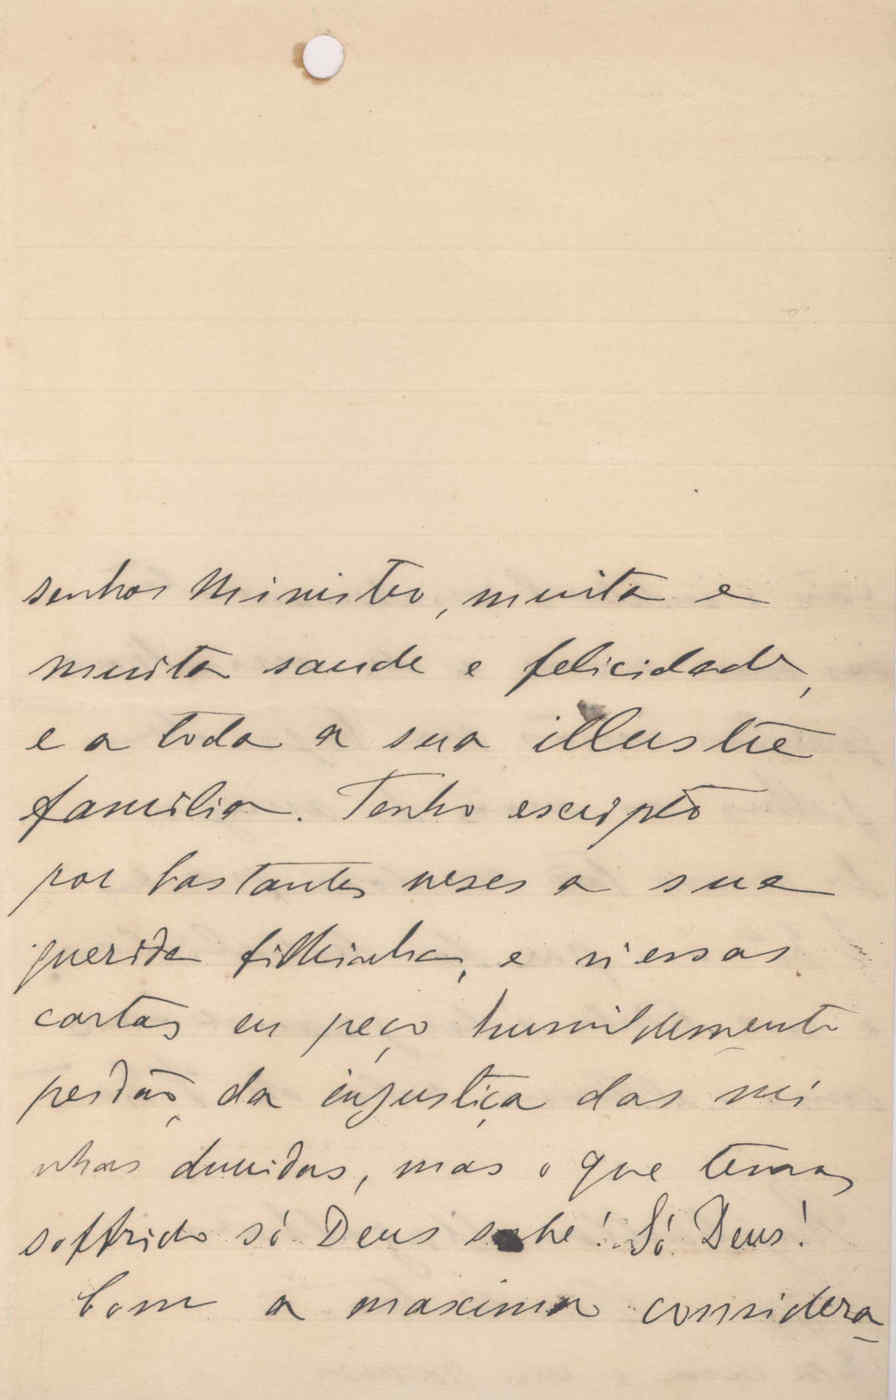 senhor Ministro, muita e
muita saude e felicidade,
e a toda a sua illustre
familia. Tenho escripto
por bastantes veses a sua
querida filhinha, e n'essas
cartas eu peço humildemente
perdão, da injustiça das mi
nhas duvidas, mas o que temos
soffrido só Deus sabe! Só Deus!
Com a maxima considera